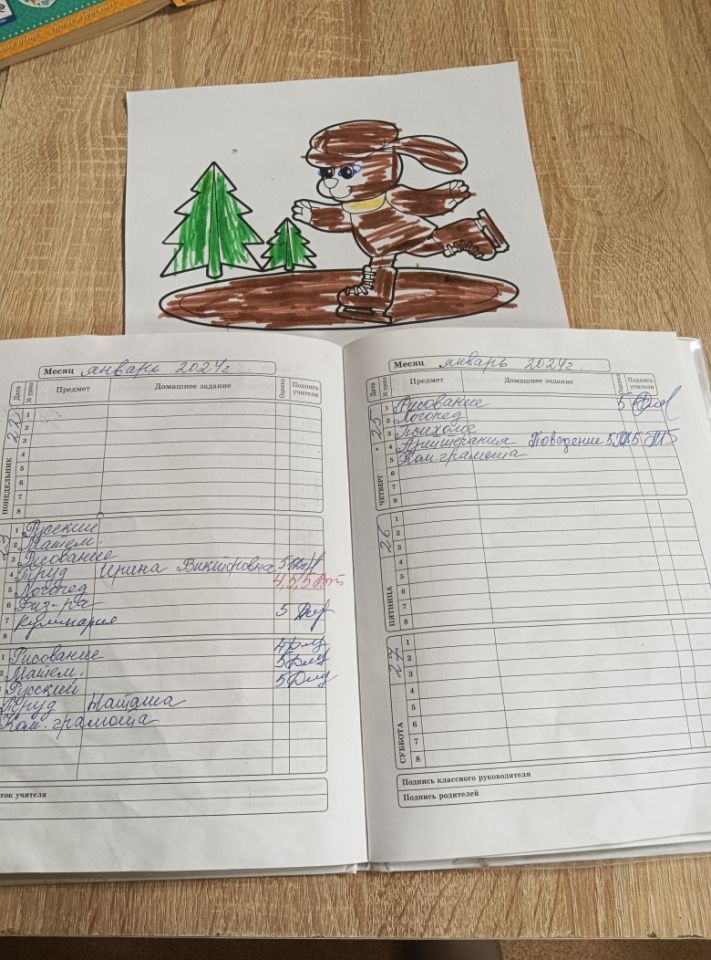 Месяц январь 2024г
Дата № урока Предмет Домашнее задание Оценка Подпись учителя
ПОНЕДЕЛЬНИК 22
1
2
3
4
5
6
7
8
23
1 Русский
2 Матем.
3 Рисование
4 Труд Ирина Викторовна 5
5 Логопед 4,5,5
6 Физ-ра
7 Кулинария 5
8
1 Рисование 4
2 Матем. 5
Русский 5
Труд Наташа
Ком. грамота
учителя
Месяц январь 2024г.
Дата № урока Предмет Домашнее задание Оценка Подпись учителя
ЧЕТВЕРГ 25
1 Рисование 5
2 Логопед
3 Психолог
4 Арттерапия Поведение 5
5 Ком. грамота
6
7
8
ПЯТНИЦА 26
1
2
3
4
5
6
7
8
СУББОТА 27
1
2
3
4
5
6
7
8
Подпись классного руководителя
Подпись родителей